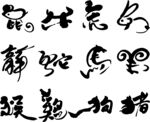 鼠牛虎兔
龍蛇馬羊
猴鷄狗猪